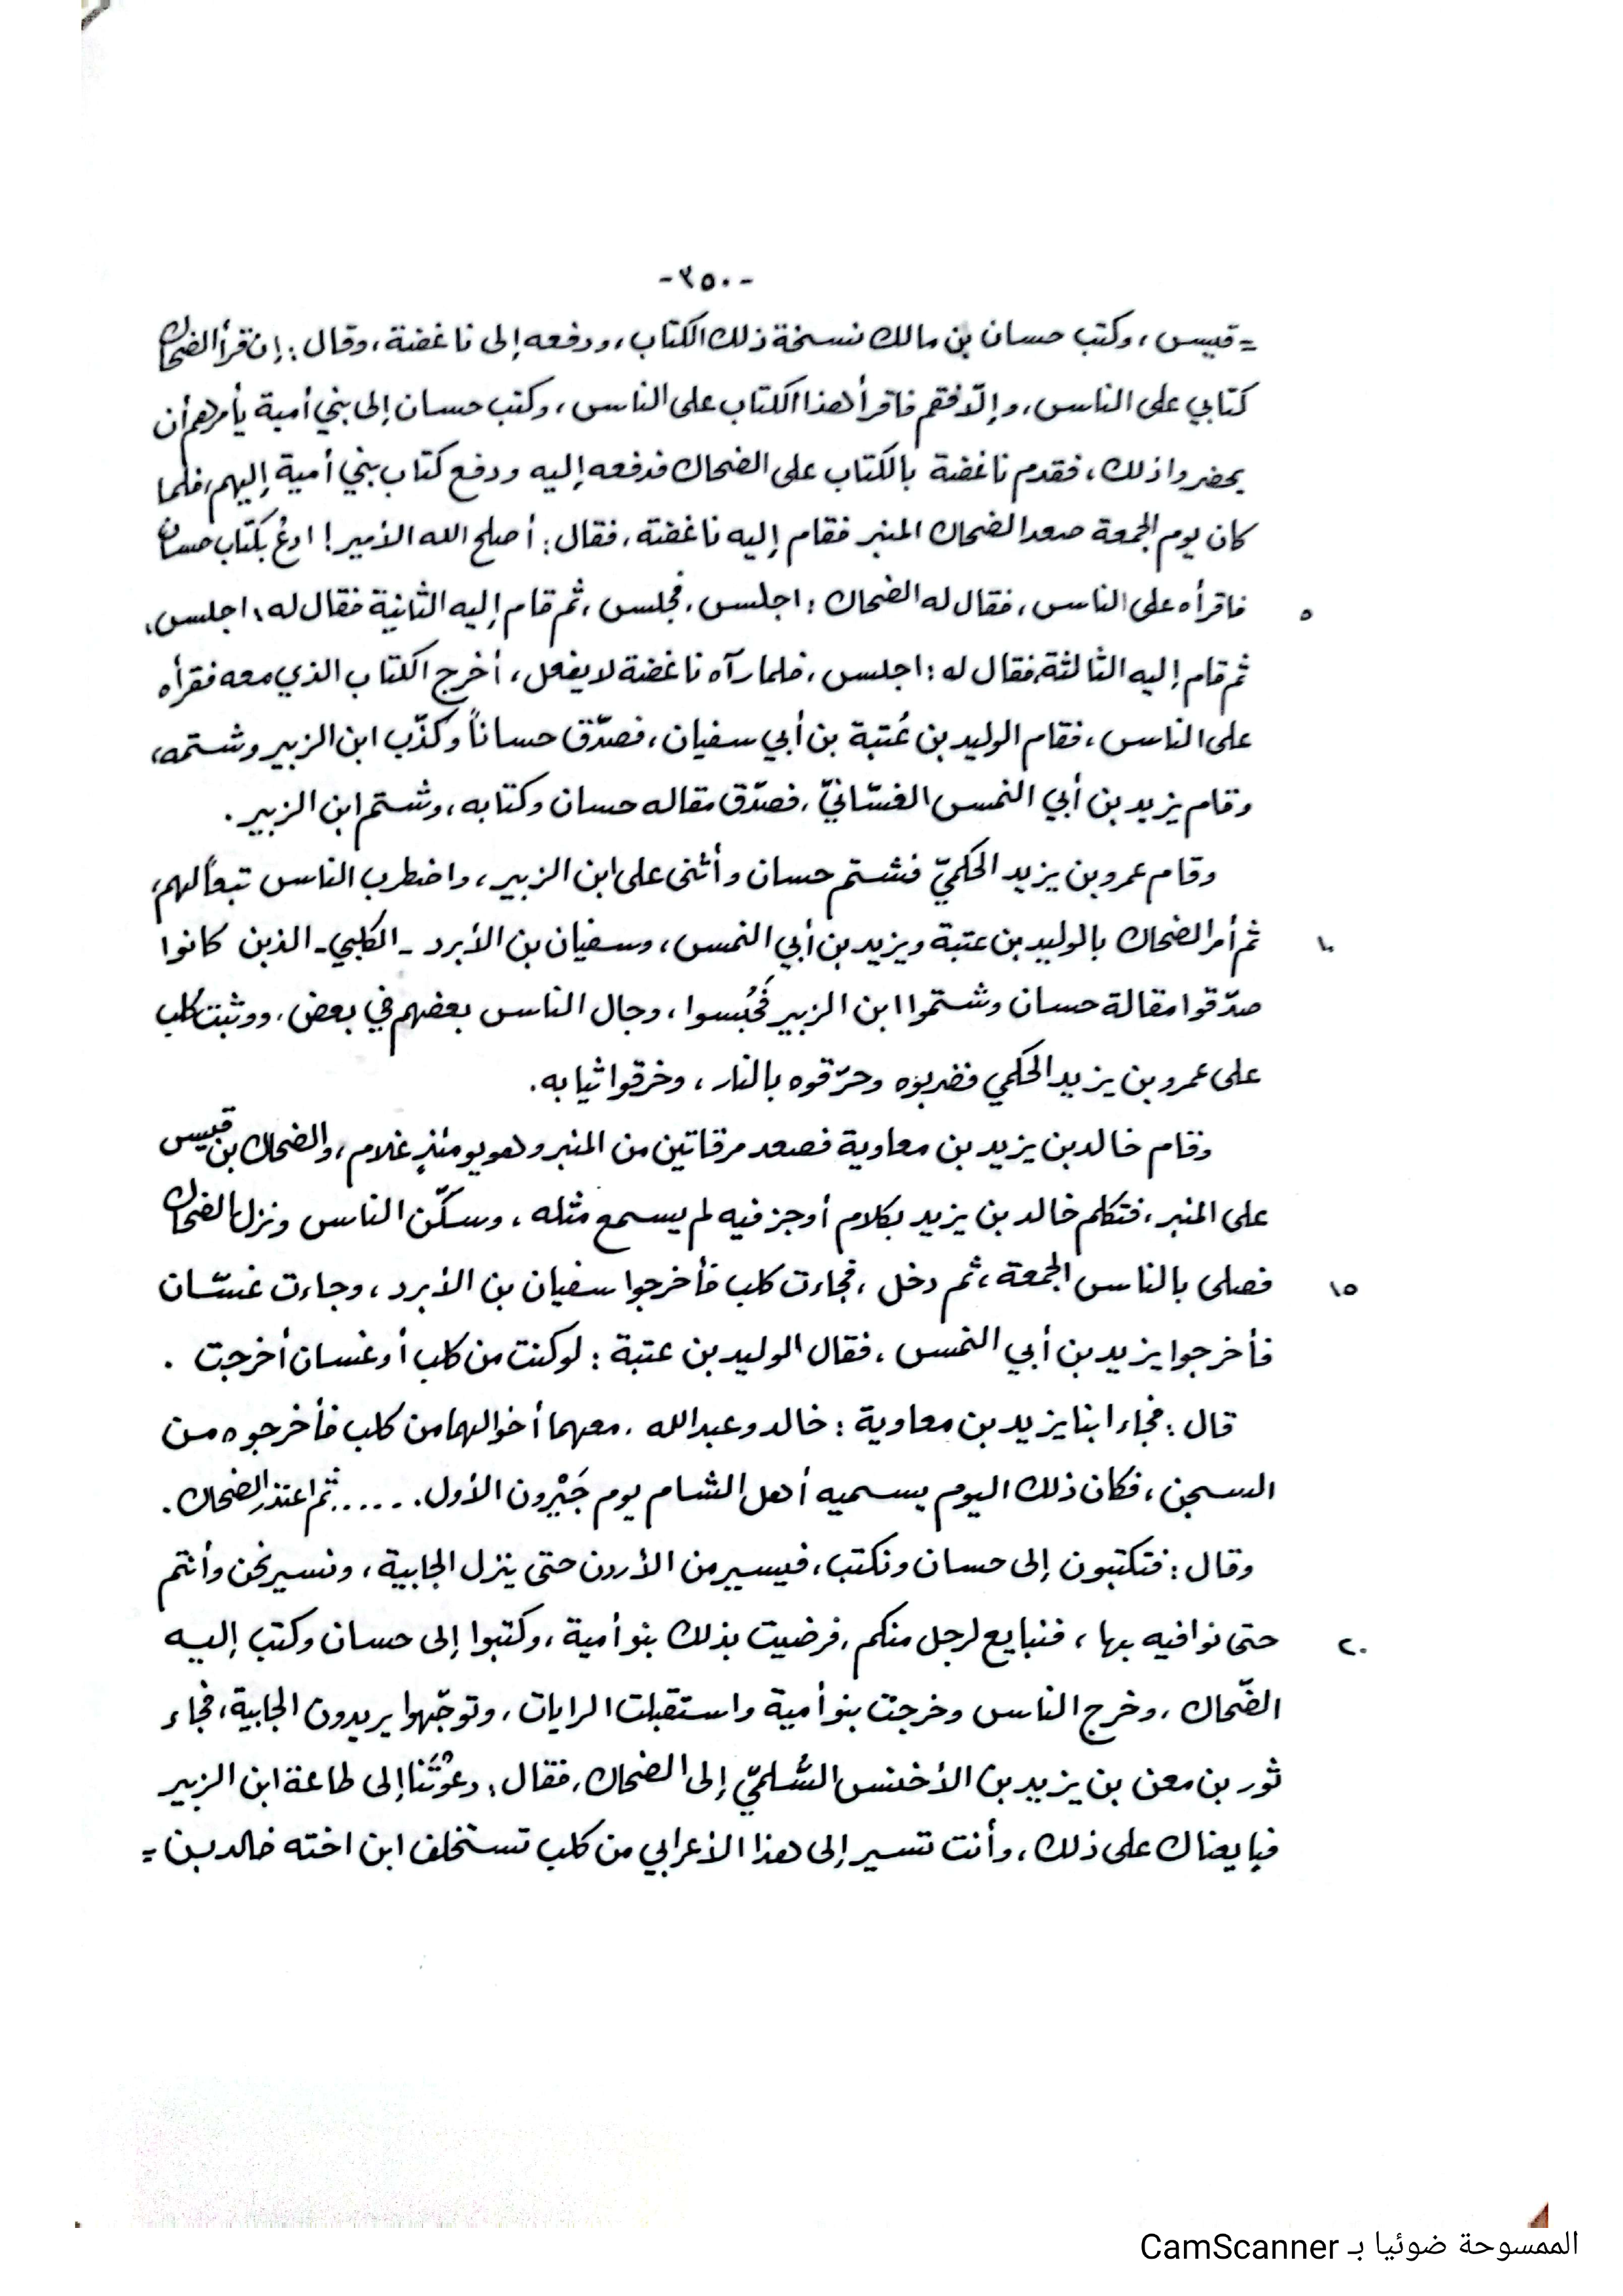 -٣٥٠-
= قيس، وكتب حسان بن مالك نسخة ذلك الكتاب، ودفعه إلى ناغضة، وقال: إن قرأ الضحاك
كتابي على الناس، وإلّا فقم فاقرأ هذا الكتاب على الناس، وكتب حسان إلى بني أمية يأمرهم أن
يحضروا ذلك، فقدم ناغضة بالكتاب على الضحاك فدفعه إليه ودفع كتاب بني أمية إليهم، فلما
كان يوم الجمعة صعد الضحاك المنبر فقام إليه ناغضة، فقال: أصلح الله الأمير! ادعُ بكتاب حسان
٥ فاقرأه على الناس، فقال له الضحاك: اجلس، فجلس، ثم قام إليه الثانية فقال له: اجلس،
ثم قام إليه الثالثة، فقال له: اجلس، فلما رآه ناغضة لا يفعل، أخرج الكتاب الذي معه فقرأه
على الناس، فقام الوليد بن عُتبة بن أبي سفيان، فصدّق حساناً وكذّب ابن الزبير وشتمه،
وقام يزيد بن أبي النمس الغسّانيّ، فصدّق مقاله حسان وكتابه، وشتم ابن الزبير.
وقام عمرو بن يزيد الحكميّ فشتم حسان وأثنى على ابن الزبير، واضطرب الناس تبعاً لهم،
١٠ ثم أمر الضحاك بالوليد بن عتبة ويزيد بن أبي النمس، وسفيان بن الأبرد - الكلبي - الذين كانوا
صدّقوا مقالة حسان وشتموا ابن الزبير فَحُبسوا، وجال الناس بعضهم في بعض، ووثبت كلب
على عمرو بن يزيد الحكمي فضربوه وحرّقوه بالنار، وخرقوا ثيابه.
وقام خالد بن يزيد بن معاوية فصعد مرقاتين من المنبر وهو يومئذٍ غلام، والضحاك بن قيس
على المنبر، فتكلم خالد بن يزيد بكلام أوجز فيه لم يسمع مثله، وسكّن الناس ونزل الضحاك
١٥ فصلى بالناس الجمعة، ثم دخل، فجاءت كلب فأخرجوا سفيان بن الأبرد، وجاءت غسّان
فأخرجوا يزيد بن أبي النمس، فقال الوليد بن عتبة: لو كنت من كلب أو غسان أخرجت.
قال: فجاء ابنا يزيد بن معاوية: خالد وعبد الله، معهما أخوالهما من كلب فأخرجوه من
السجن، فكان ذلك اليوم يسميه أهل الشام يوم جَيْرون الأول. ..... ثم اعتذر الضحاك.
وقال: فتكتبون إلى حسان ونكتب، فيسير من الأردن حتى ينزل الجابية، ونسير نحن وأنتم
٢٠ حتى نوافيه بها، فنبايع لرجل منكم، فرضيت بذلك بنو أمية، وكتبوا إلى حسان وكتب إليه
الضّحاك، وخرج الناس وخرجت بنو أمية واستقبلت الرايات، وتوجّهوا يريدون الجابية، فجاء
ثور بن معن بن يزيد بن الأخنس السُّلميّ إلى الضحاك، فقال: دعوْتَنا إلى طاعة ابن الزبير
فبايعناك على ذلك، وأنت تسير إلى هذا الأعرابي من كلب تستخلف ابن اخته خالد بن =
الممسوحة ضوئيا بـ CamScanner